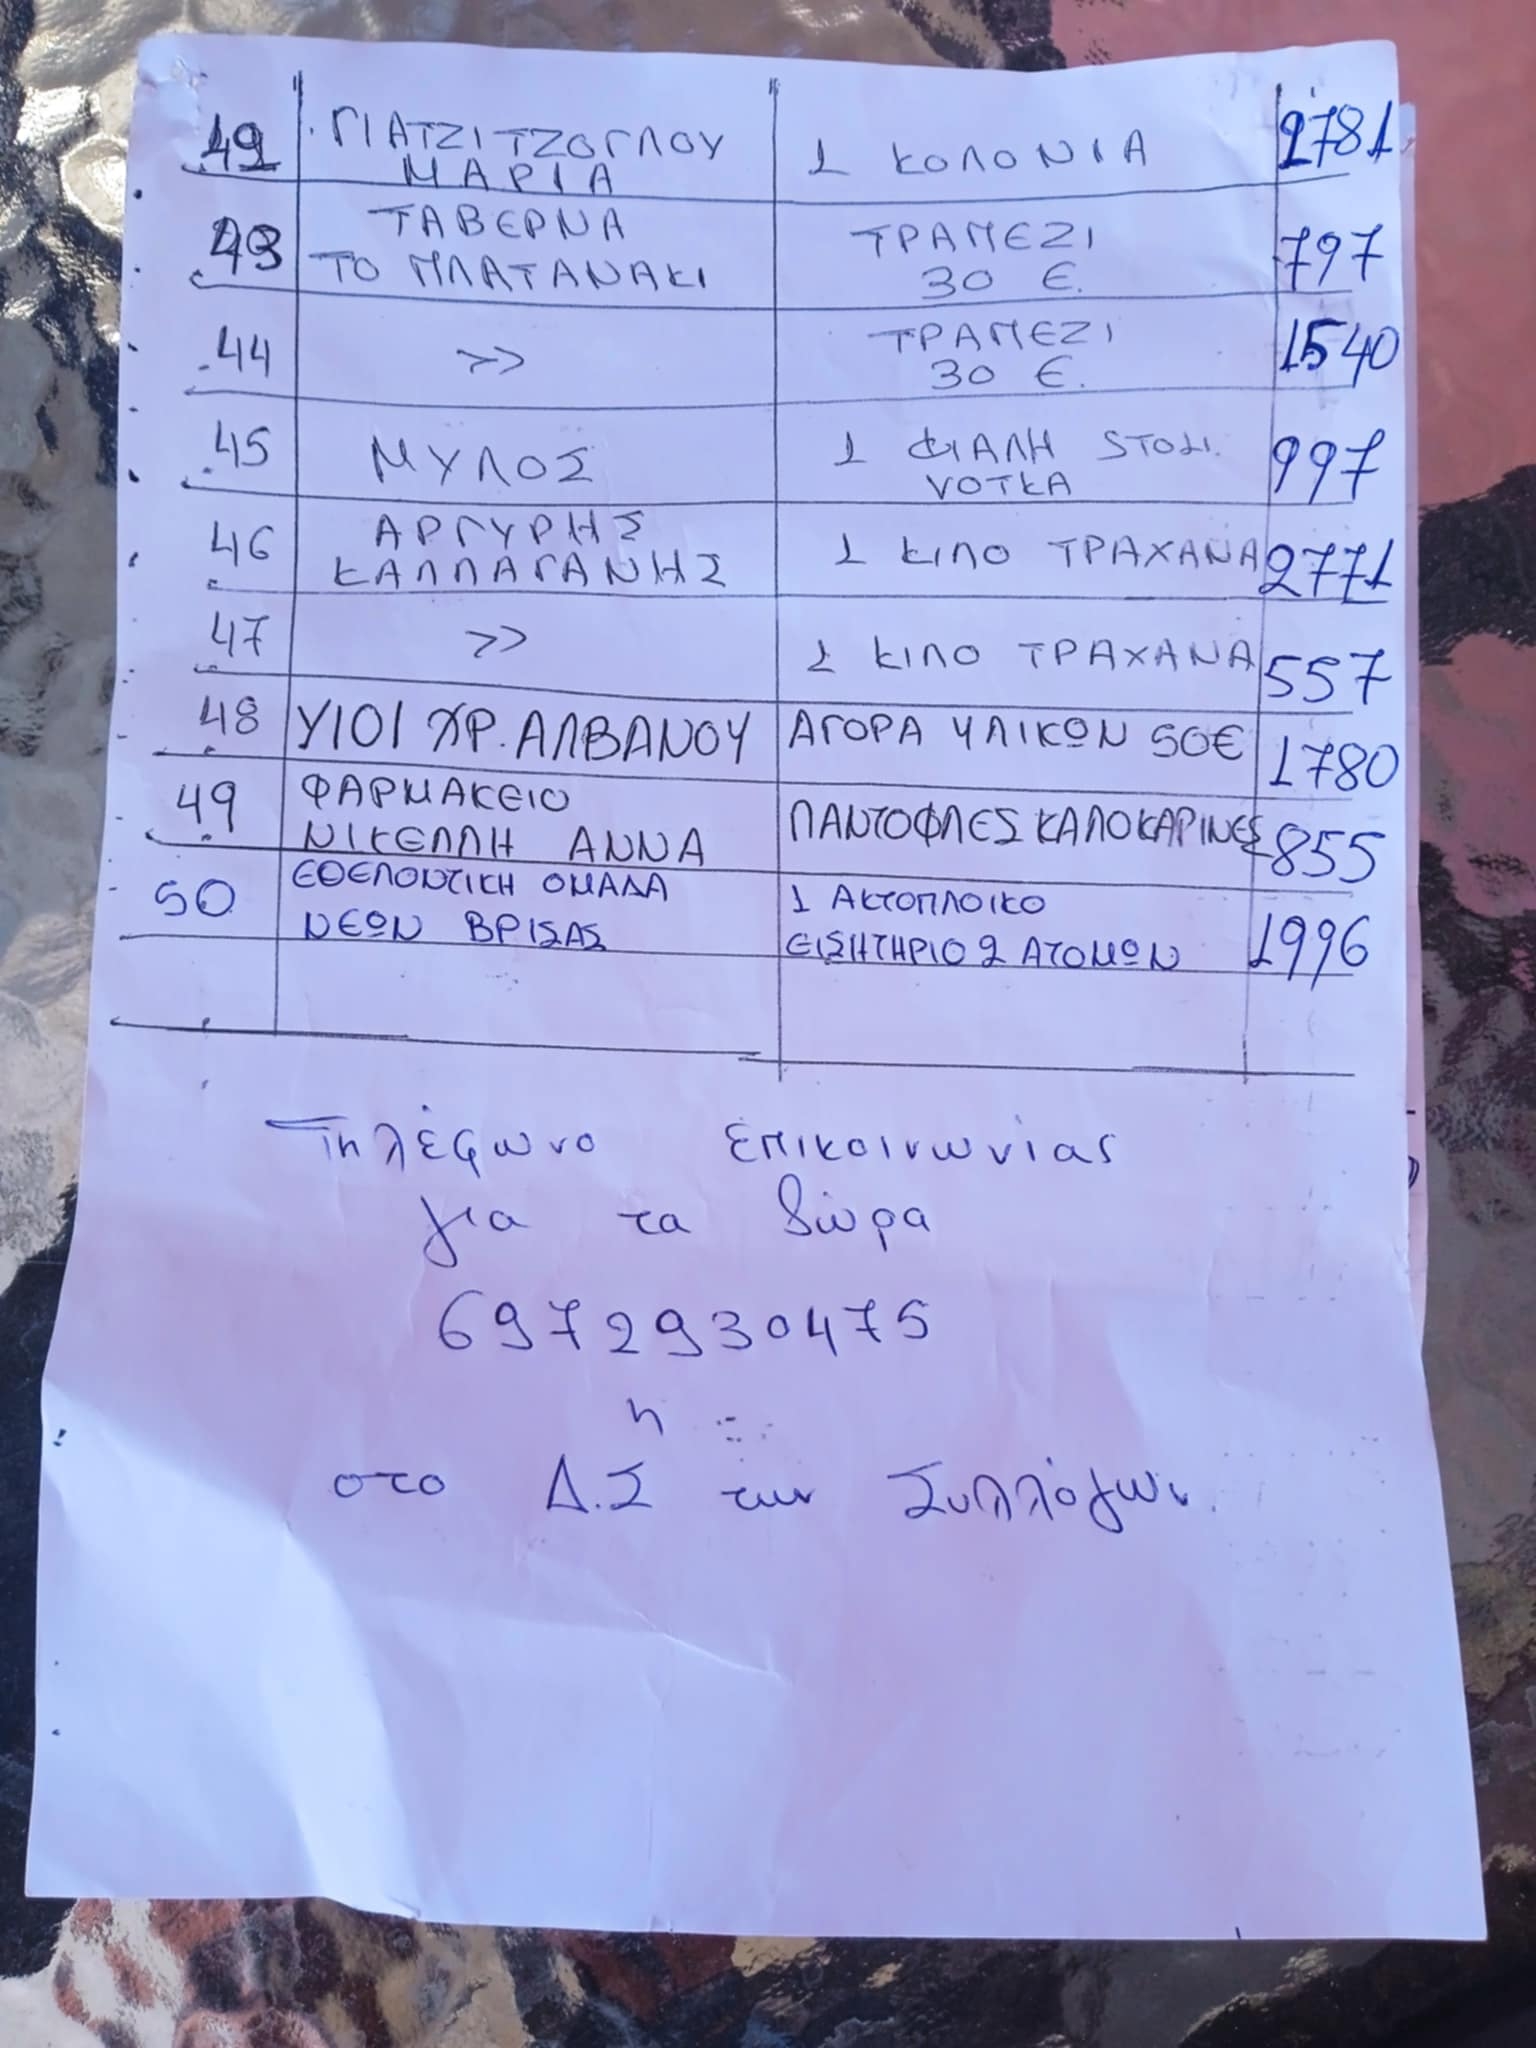 42 ΓΙΑΤΖΙΤΖΟΓΛΟΥ ΜΑΡΙΑ 1 ΚΟΛΟΝΙΑ 2781
43 ΤΑΒΕΡΝΑ ΤΟ ΠΛΑΤΑΝΑΚΙ ΤΡΑΠΕΖΙ 30 €. 797
44 >> ΤΡΑΠΕΖΙ 30 €. 1540
45 ΜΥΛΟΣ 1 ΦΙΑΛΗ STOLI. VOTKA 997
46 ΑΡΓΥΡΗΣ ΚΑΛΛΑΓΑΝΗΣ 1 ΚΙΛΟ ΤΡΑΧΑΝΑ 2771
47 >> 1 ΚΙΛΟ ΤΡΑΧΑΝΑ 557
48 ΥΙΟΙ ΧΡ. ΑΛΒΑΝΟΥ ΑΓΟΡΑ ΥΛΙΚΩΝ 50€ 1780
49 ΦΑΡΜΑΚΕΙΟ ΝΙΚΕΛΛΗ ΑΝΝΑ ΠΑΝΤΟΦΛΕΣ ΚΑΛΟΚΑΡΙΝΕΣ 855
50 ΕΘΕΛΟΝΤΙΚΗ ΟΜΑΔΑ ΝΕΩΝ ΒΡΙΣΑΣ 1 ΑΚΤΟΠΛΟΙΚΟ ΕΙΣΗΤΗΡΙΟ 2 ΑΤΟΜΩΝ 1996
Τηλέφωνο επικοινωνίας
για τα δώρα
6972930475
ή
στο Δ.Σ των Συλλόγων.